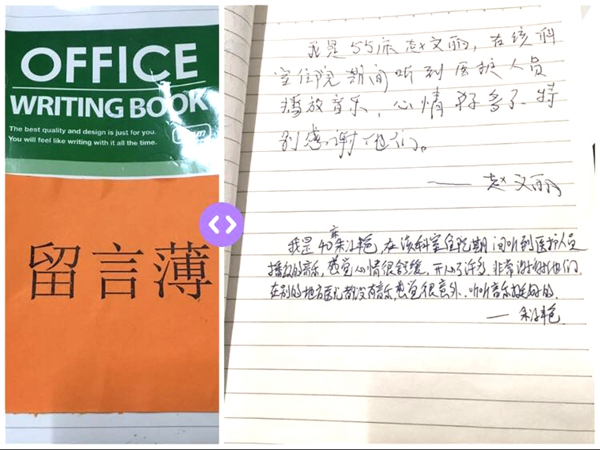 OFFICE
WRITING BOOK
The best quality and design is just for you.
You will feel like writing with it all the time.
留言薄
我是55床赵文丽，在该科
室住院期间听到医护人员
播放音乐，心情好多了，特
别感谢他们。
——赵文丽
我是40床 艳，在该科室住院期间听到医护人员
播放的音乐，感觉心情很舒缓，开心了许多，非常 他们，
在别的地方医院都没有音乐，感觉很意外，听听音乐挺好的．